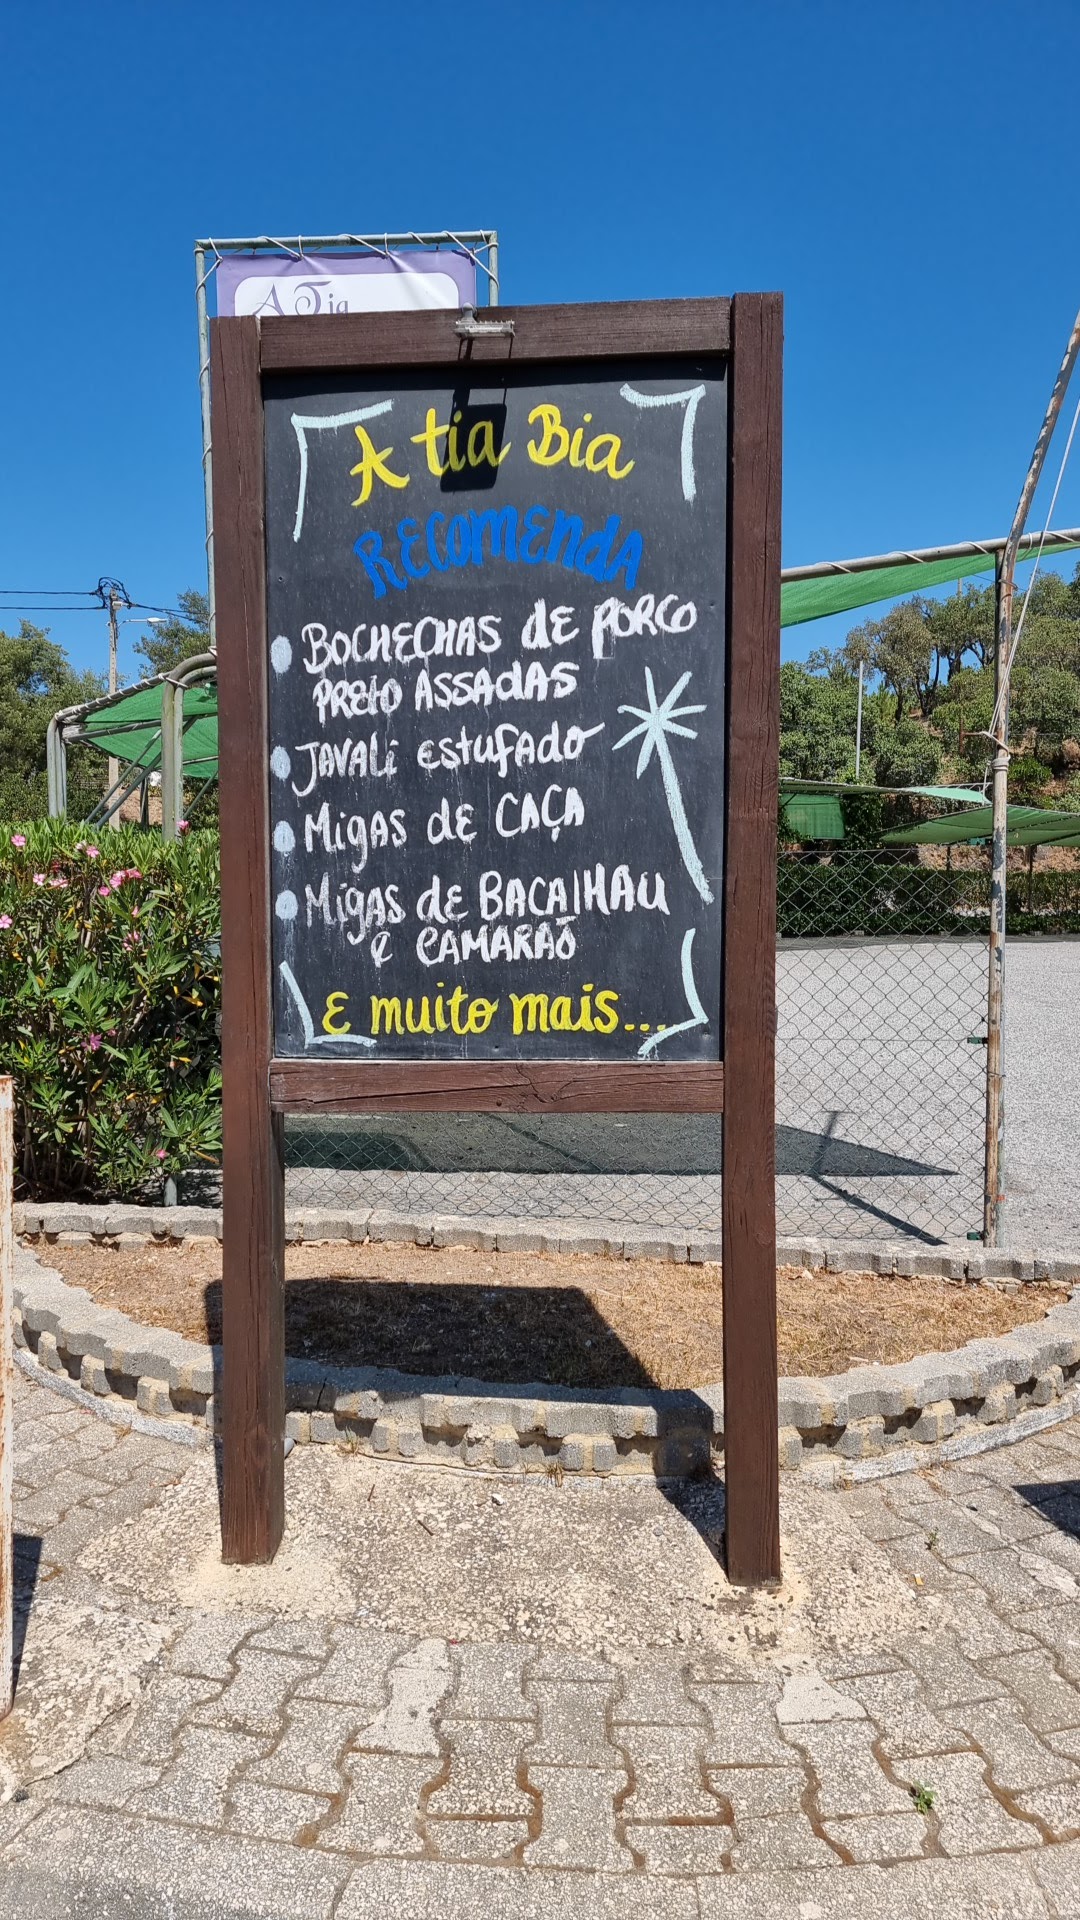 A Tia
A tia Bia
RECOMENDA
BOCHECHAS de PORCO
PRETO ASSADAS
JAVALI estufado
Migas de CAÇA
Migas de BACALHAU
e CAMARÃO
E muito mais...